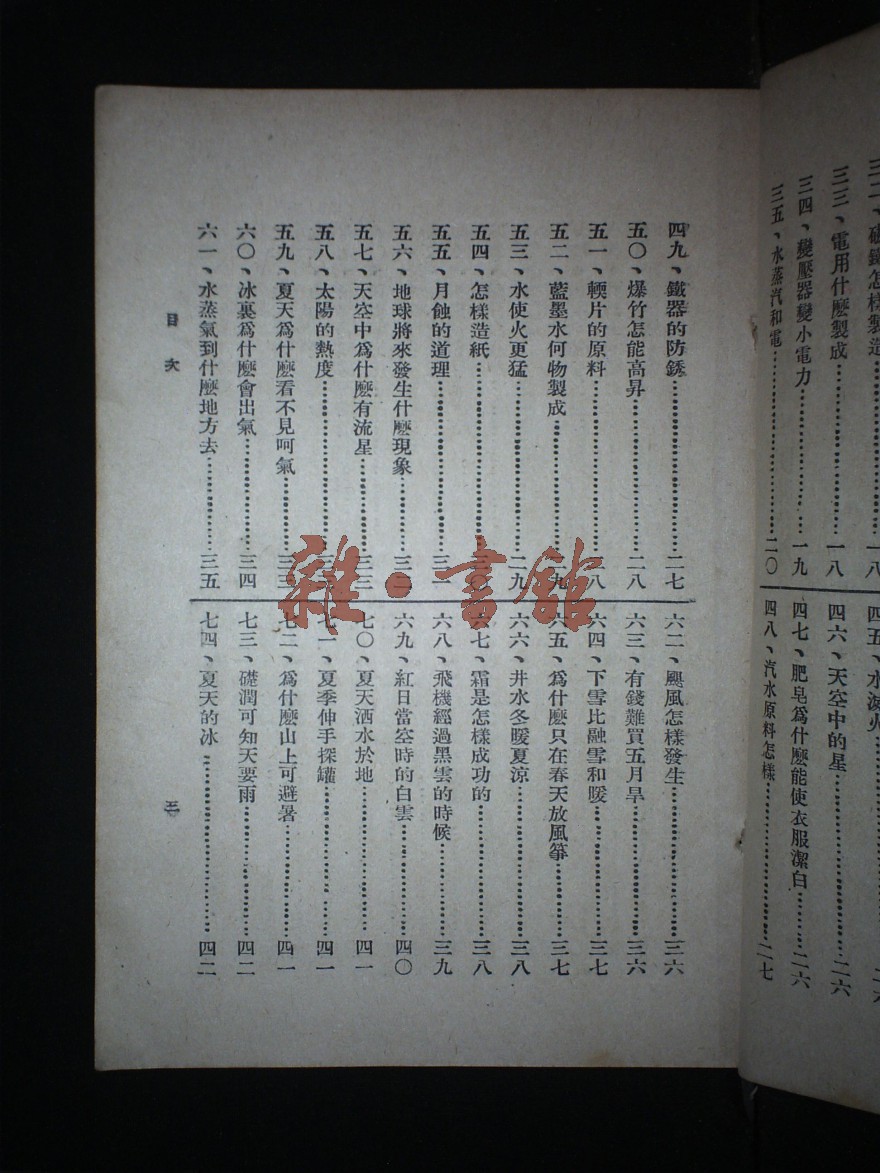 三三、電用什麽製成……一八
三四、變壓器變小電力……一九
三五、水蒸汽和電……二〇
四六、天空中的星……二六
四七、肥皂爲什麽能使衣服潔白……二六
四八、汽水原料怎樣……二七
四九、鐵器的防銹……二七
五〇、爆竹怎能高昇……二八
五一、輭片的原料……八
五二、藍墨水何物製成……九
五三、水使火更猛……二九
五四、怎樣造紙……
五五、月蝕的道理……三一
五六、地球將來發生什麽現象……三
五七、天空中爲什麽有流星……三三
五八、太陽的熱度……
五九、夏天爲什麽看不見呵氣……三三
六〇、冰裏爲什麽會出氣……三四
六一、水蒸氣到什麽地方去……三五
六二、颶風怎樣發生……三六
六三、有錢難買五月旱……三六
六四、下雪比融雪和暖……三七
六五、爲什麽只在春天放風箏……三七
六六、井水冬暖夏涼……三八
六七、霜是怎樣成功的……三八
六八、飛機經過黑雲的時候……三九
六九、紅日當空時的白雲……四〇
七〇、夏天洒水於地……四一
七一、夏季伸手探罐……四一
七二、爲什麽山上可避暑……四一
七三、礎潤可知天要雨……四二
七四、夏天的冰……四二
目次
三
雜·書館